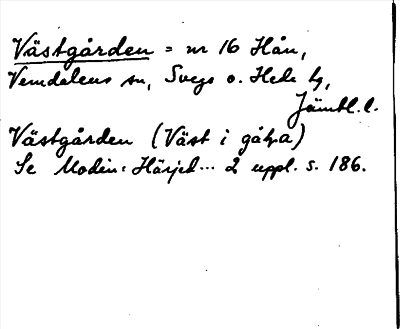 Västgården = nr 16 Hån,
Vemdalens sn, Svegs o. Hede tg,
Jämtl. l.
Västgården (Väst i gåŧa)
Se Modin: Härjed... 2 uppl. s. 186.